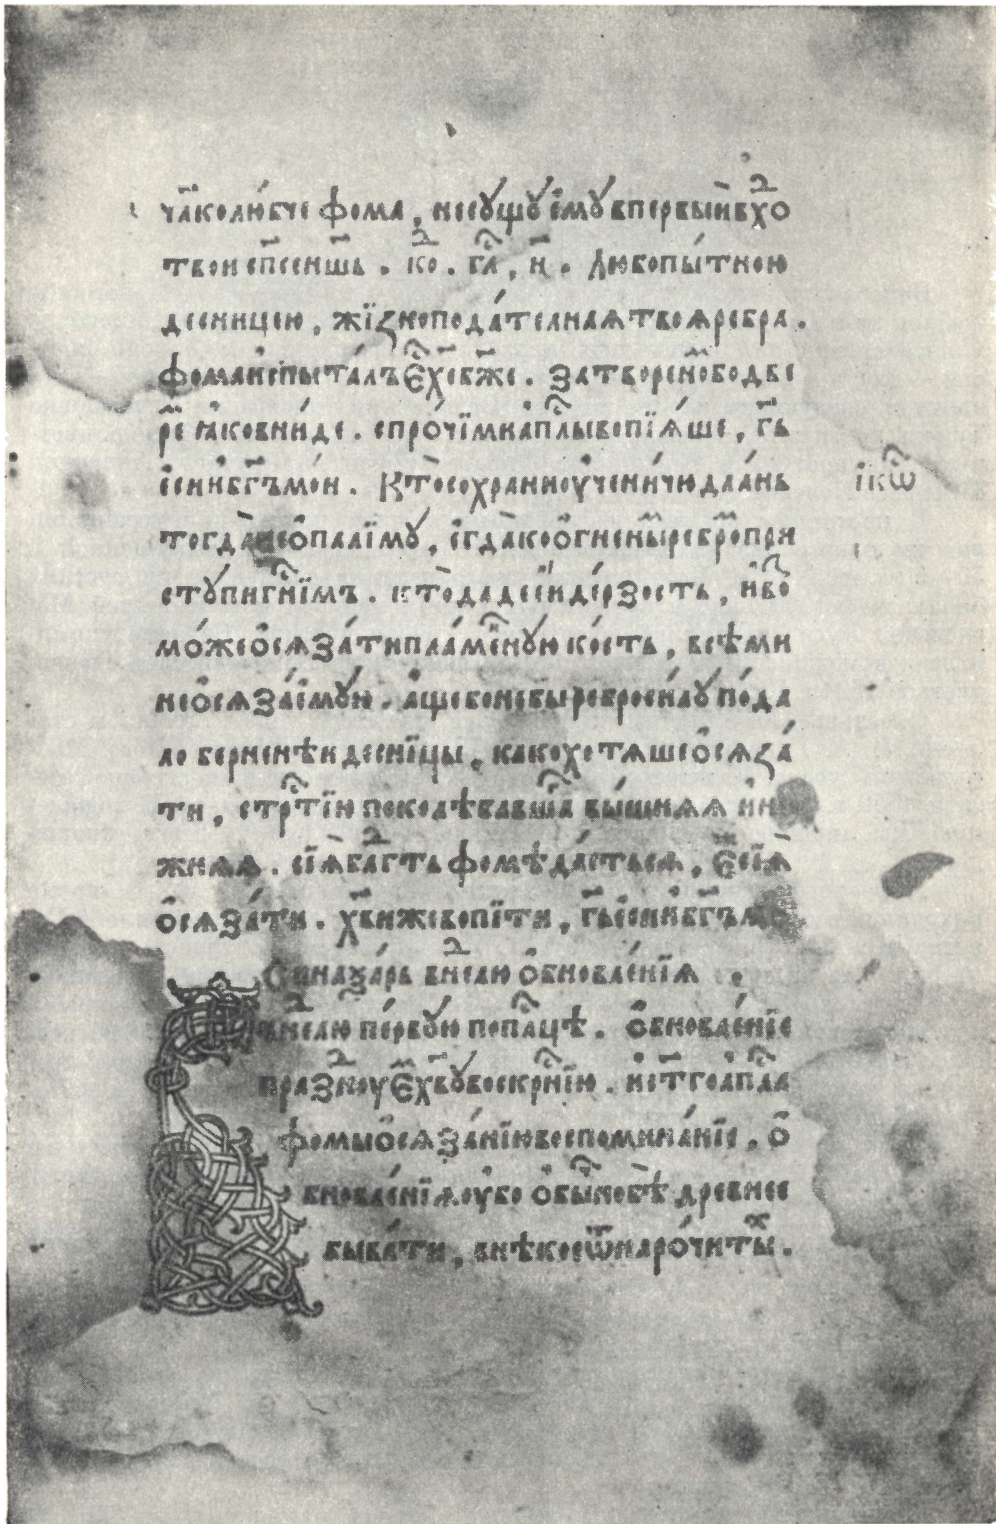 ча҃колю́бче фома, несꙋ́щꙋ є҆мꙋ впервы́и вхо҆
твои сп҃се нш҃ь. ко҆. гл҃, и҃. Любопы́тною
десницею, жїꙁнопода́телнаѧ твоѧ ребра.
фома испыта́лъ є҆сѝ хе҃ бж҃е. Затворено҆ бо две
ре҆ ꙗковни́де. спро́чїми ап҃лы вопїѧ́ше, гь҃
є҆си и҆ бг҃ъ мо́и. Кто̀ сохрани оу҆чени́чю дла́нь
і҆кѡ҆
тогда̀ не о҆палїмꙋ, є҆гда̀ ко о҆гнены҆ ребро҆ при
стꙋпи гн҃їмъ. кто̀ даде се́и де́рзость, и҆ во
мо́же о҆сѧза́ти пла́менꙋю ко́сть, всѣми
не о҆сѧза́емꙋю. а҆ще бо не бы ребро си́лꙋ по́да
ло берненѣи десни́цы, како хотѧше о҆сѧꙁа́
ти, стрт҃їю поколѣбавша҆ вы́шнѧѧ и҆ ни
жнѧѧ. сїѧ̀ бла҃гть фомѣ да́стьсѧ, є҆же сїѧ̀
о҆сѧза́ти. хв҃и же вопїти, гь҃ є҆си и҆ бг҃ъ мо
Синаѯа́рь внелю о҆бновле́нїѧ
внелю пе́рвꙋю попа҆цѣ. о҆бновле́нїе
пра҆знꙋє҆ хв҃ꙋ воскрн҃їю. и҆ ст҃го ап҃ла
фомы о҆сѧза́нїю воспомина́нїе, о҆
бновле́нїѧ оу҆бо о҆бы҆но бѣ̀ древнее
быва́ти, внѣкое ѿ наро́читы҆х.